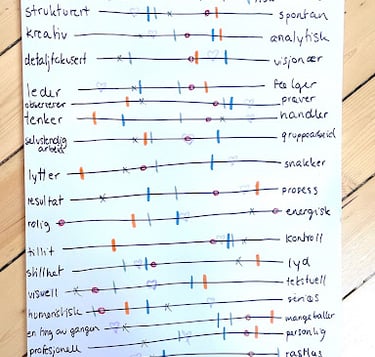 strukturert spontan
kreativ analytisk
detaljfokusert visjonær
leder følger
observerer prøver
tenker handler
selvstendig arbeid gruppearbeid
lytter snakker
resultat prosess
rolig energisk
tillit kontroll
stillhet lyd
visuell tekstuell
humoristisk seriøs
en ting av gangen mange baller
profesjonell personlig
rastløs